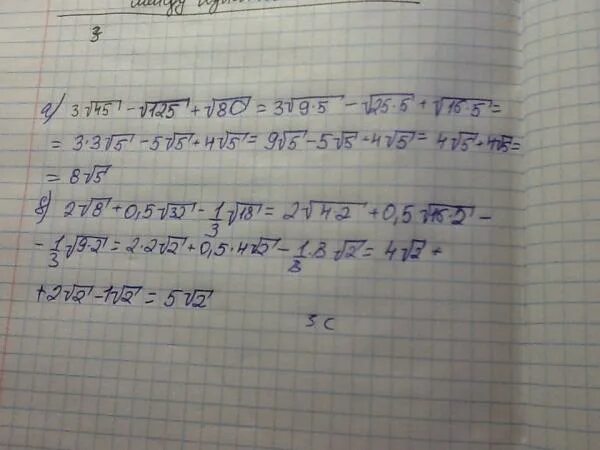 между
3
а) 3√45 - √125 + √80 = 3√9·5 - √25·5 + √16·5 =
= 3·3√5 - 5√5 + 4√5 = 9√5 - 5√5 + 4√5 = 4√5 + 4√5 =
= 8√5
б) 2√8 + 0,5√32 - 1/3√18 = 2√4·2 + 0,5√16·2 -
- 1/3√9·2 = 2·2√2 + 0,5·4√2 - 1/3·3√2 = 4√2 +
+ 2√2 - 1√2 = 5√2
3 с